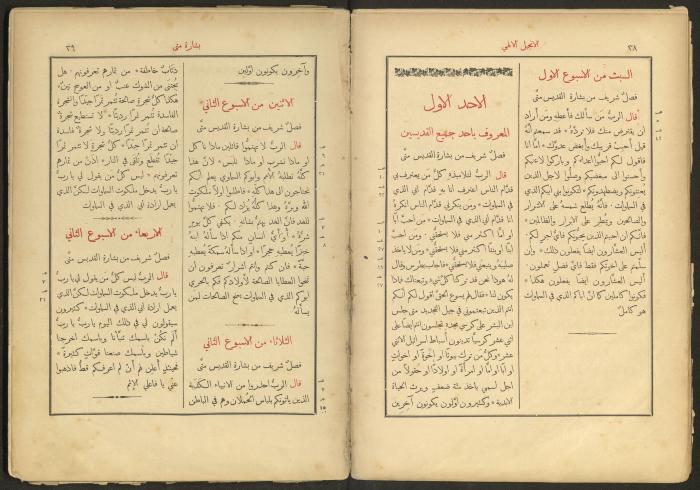 ٣٨
الانجيل الالهي
السبت من الاسبوع الاول
فصلٌ شريف من بشارة القديس متى
قال الربُّ من سألك فأعطهِ ومن أراد
أن يقترض منك فلا تردَّهُ * قد سمعتم أنَّهُ
قيل أحبب قريبك وأبغض عدوَّك * أمَّا أنا
فاقول لكم أحبُّوا أعداءكم وباركوا لاعنيكم
وأحسنوا الى مبغضيكم وصلُّوا لاجل الذين
يعنتونكم ويضطهدونكم * لتكونوا بني أبيكم الذي
في السماوات * فانَّهُ يُطلع شمسهُ على الاشرار
والصالحين ويُمطر على الابرار والظالمين *
فانَّكم ان أحببتم الذين يحبُّونكم فايُّ اجرٍ لكم *
أليس العشَّارون ايضًا يفعلون ذلك * وان
سلَّمتم على اخوتكم فقط فايَّ فضلٍ تعملون *
أليس العشَّارون ايضًا يفعلون هكذا *
فكونوا كاملين كما أنَّ اباكم الذي في السماوات
هو كامل
الاحد الاول
المعروف باحد جميع القديسين
فصلٌ شريف من بشارة القديس متى
قال الربُّ لتلاميذهِ كلُّ من يعترف بي
قدَّام الناس أعترف انا بهِ قدَّام أبي الذي
في السماوات * ومن ينكرني قدَّام الناس أنكرهُ
انا قدَّام أبي الذي في السماوات * من أحبَّ أبًا
او أمًّا أكثر مني فلا يستحقُّني * ومن أحبَّ
ابنًا او بنتًا أكثر مني فلا يستحقُّني * ومن لا ياخذ
صليبهُ ويتبعني فلا يستحقُّني * فاجاب بطرس وقال
لهُ هوذا نحن قد تركنا كلَّ شيء وتبعناك فماذا
يكون لنا * فقال لهم يسوع الحقَّ اقول لكم انَّكم
انتم الذين تبعتموني في جيل التجديد متى جلس
ابن البشر على كرسيّ مجدهِ تجلسون انتم ايضًا على
اثني عشر كرسيًّا تدينون أسباط اسرائيل الاثني
عشر * وكلُّ من ترك بيوتًا او اخوةً او أخواتٍ
او أبًا او أمًّا او امرأةً او اولادًا او حقولًا من
اجل اسمي ياخذ مئة ضعفٍ ويرث الحياة
الابدية * وكثيرون اوَّلون يكونون آخرين
بشارة متى
٣٩
وآخرون يكونون اوَّلين
الاثنين من الاسبوع الثاني
فصلٌ شريف من بشارة القديس متى
قال الربُّ لا تهتمُّوا قائلين ماذا ناكل
او ماذا نشرب او ماذا نلبس * لانَّ هذا
كلَّهُ تطلبهُ الأمم وابوكم السماوي يعلم انَّكم
تحتاجون الى هذا كلِّهِ * فاطلبوا اولًا ملكوت
الله وبرَّهُ وهذا كلُّهُ يُزاد لكم * فلا تهتمُّوا
للغد فانَّ الغد يهتمُّ بشانهِ * يكفي كلَّ يومٍ
شرُّهُ * أيُّ إنسانٍ منكم اذا سألهُ ابنهُ
خبزًا يُعطيهِ حجرًا * او اذا سألهُ سمكةً يعطيهِ
حيَّةً * فان كنتم وانتم اشرار تعرفون ان
تمنحوا العطايا الصالحة لأولادكم فكم بالحري
ابوكم الذي في السماوات يمنح الصالحات لمن
يسألهُ
الثلاثاء من الاسبوع الثاني
فصلٌ شريف من بشارة القديس متى
قال الربُّ احذروا من الانبياء الكذَبة
الذين ياتونكم بلباس الحُملان وهم في الباطن
ذئابٌ خاطفة * من ثمارهم تعرفونهم * هل
يُجتنى من الشوك عنبٌ او من العوسج تينٌ *
هكذا كلُّ شجرةٍ صالحة تُثمر ثمرًا جيّدًا والشجرة
الفاسدة تُثمر ثمرًا رديئًا * لا تستطيع شجرةٌ
صالحة ان تُثمر ثمرًا رديئًا ولا شجرةٌ فاسدة
ان تُثمر ثمرًا جيّدًا * كلُّ شجرةٍ لا تُثمر ثمرًا
جيّدًا تُقطع وتُلقى في النار * اذن من ثمارهم
تعرفونهم * ليس كلُّ من يقول لي يا ربُّ
يا ربُّ يدخل ملكوت السماوات لكنَّ الذي
يعمل ارادة أبي الذي في السماوات
الاربعاء من الاسبوع الثاني
فصلٌ شريف من بشارة القديس متى
قال الربُّ ليس كلُّ من يقول لي يا ربُّ
يا ربُّ يدخل ملكوت السماوات لكنَّ الذي
يعمل ارادة أبي الذي في السماوات * كثيرون
سيقولون لي في ذلك اليوم يا ربُّ يا ربُّ
ألم نكن باسمك تنبَّأنا وباسمك اخرجنا
شياطين وباسمك صنعنا قوَّاتٍ كثيرة *
فحينئذٍ أُعلن لهم أني لم اعرفكم قطُّ فاذهبوا
عنّي يا فاعلي الإثم